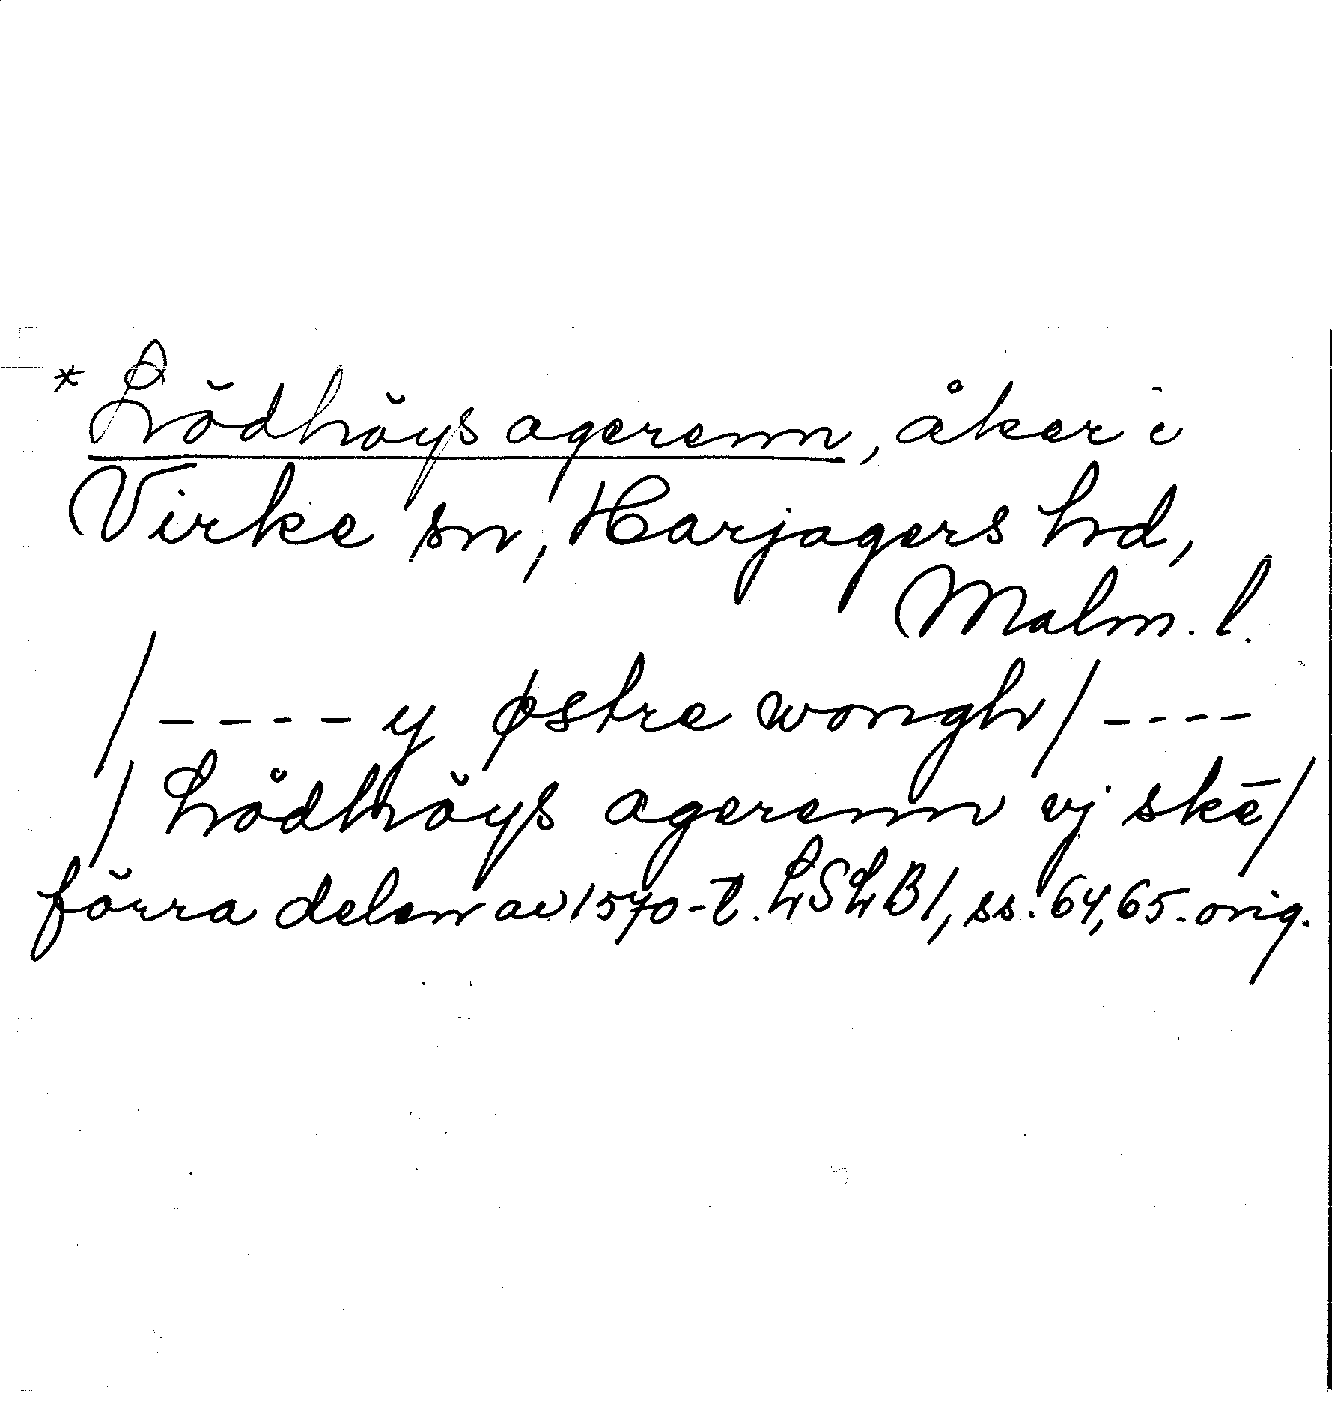 * Lödhöys agerenn, åker i
Virke sn, Harjagers hd,
Malm. l.
/ - - - - y østre wongh / - - - -
/ Lödhöys agerenn vj skē /
förra delen av 1570-t. LSLB 1, ss. 64, 65. orig.